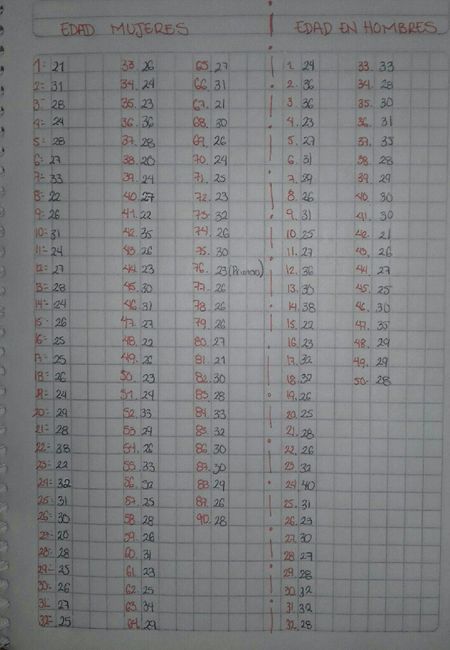 EDAD MUJERES
1= 21
2= 31
3= 28
4= 24
5= 28
6= 27
7= 33
8= 22
9= 26
10= 31
11= 24
12= 27
13= 28
14= 24
15= 26
16= 25
17= 25
18= 26
19= 24
20= 29
21= 28
22= 38
23= 22
24= 32
25= 31
26= 30
27= 20
28= 28
29= 25
30= 26
31= 27
32= 25
33. 26
34. 24
35. 23
36. 36
37. 28
38. 20
39. 24
40. 27
41. 22
42. 35
43. 26
44. 23
45. 30
46. 31
47. 27
48. 22
49. 26
50. 23
51. 24
52. 33
53. 29
54. 26
55. 33
56. 32
57. 25
58. 28
59. 26
60. 31
61. 23
62. 25
63. 34
64. 29
65. 27
66. 31
67. 21
68. 30
69. 26
70. 24
71. 25
72. 23
73. 32
74. 26
75. 30
76. 23
77. 26
78. 26
79. 26
80. 27
81. 21
82. 30
83. 28
84. 33
85. 32
86. 30
87. 30
88. 29
89. 26
90. 28
EDAD EN HOMBRES
1. 29
2. 36
3. 36
4. 23
5. 27
6. 31
7. 29
8. 26
9. 31
10. 25
11. 27
12. 36
13. 30
14. 38
15. 22
16. 23
17. 32
18. 32
19. 26
20. 25
21. 28
22. 26
23. 32
24. 40
25. 31
26. 23
27. 30
28. 27
29. 28
30. 32
31. 32
32. 28
33. 33
34. 28
35. 30
36. 31
37. 35
38. 28
39. 29
40. 30
41. 30
42. 21
43. 26
44. 27
45. 25
46. 30
47. 35
48. 29
49. 29
50. 28